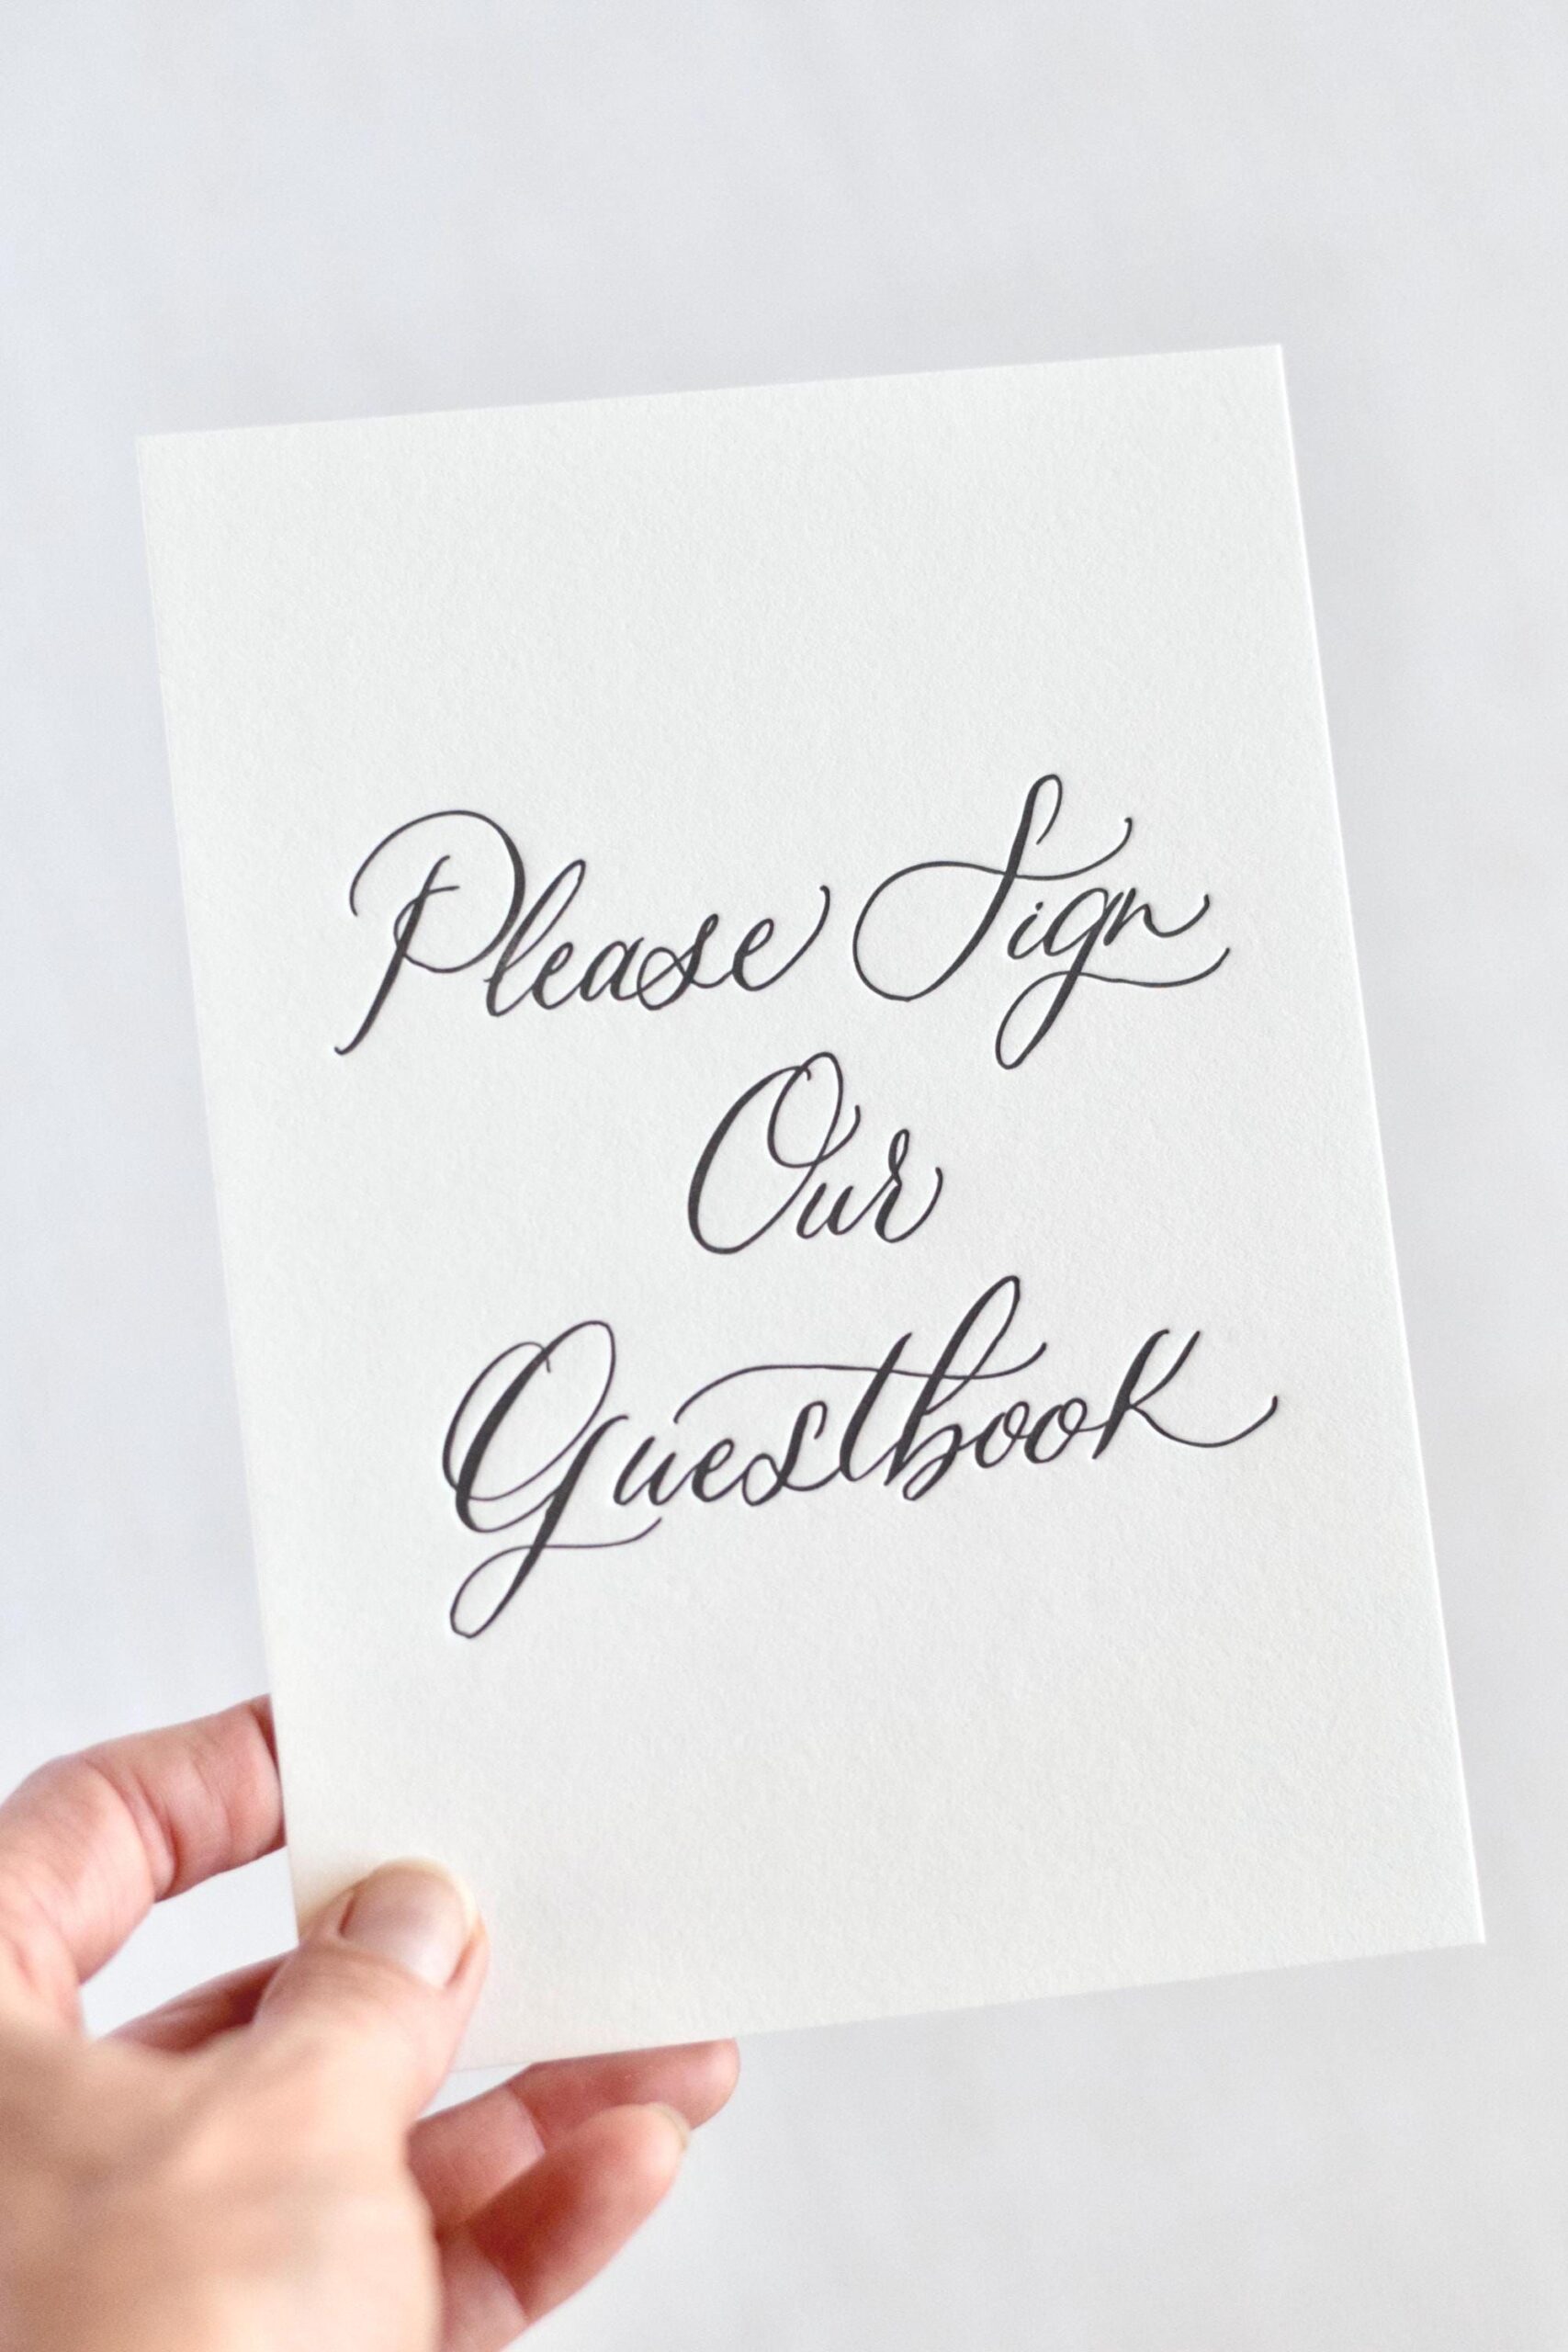 Please Sign
Our
Guestbook